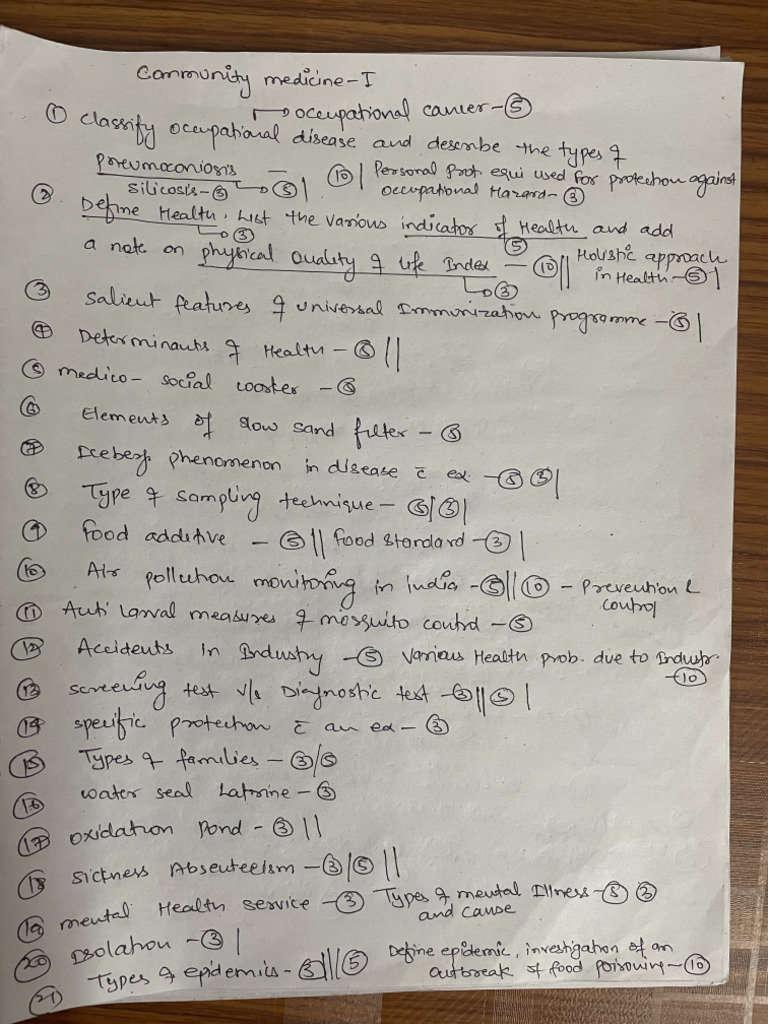 Community medicine-I
→ occupational cancer-⑤
① Classify occupational disease and describe the types of
pneumoconiosis — ⑩ | Personal Prot. equi used for protection against
Silicosis-⑤ → ⑤ | occupational Hazard-③
② Define Health, List the various indicator of Health and add
→③ ⑤
a note on physical Quality of life Index — ⑩ || Holistic approach
→③ in Health-⑤ |
③ Salient features of universal Immunization programme-⑤ |
④ Determinants of Health-⑤ ||
⑤ medico-social worker-⑤
⑥ Elements of slow sand filter-⑤
⑦ Iceberg phenomenon in disease c̄ ex-⑤ ③ |
⑧ Type of sampling technique-⑤ | ③ |
⑨ food additive-⑤ || food standard-③ |
⑩ Air pollution monitoring in india-⑤ || ⑩ - Prevention &
control
⑪ Anti larval measures of mosquito control-⑤
⑫ Accidents in Industry-⑤ Various Health prob. due to Industr.
-⑩
⑬ screening test v/s Diagnostic test-③ || ⑤ |
⑭ specific protection c̄ an ex-③
⑮ Types of families-③/⑤
⑯ water seal Latrine-③
⑰ oxidation Pond-③ ||
⑱ sickness Absenteeism-③ | ⑤ ||
⑲ mental Health service-③ Types of mental Illness-⑤ ③
and cause
⑳ Isolation-③ |
㉑ Types of epidemics-③ ||| ⑤ Define epidemic, investigation of an
outbreak of food poisoning-⑩